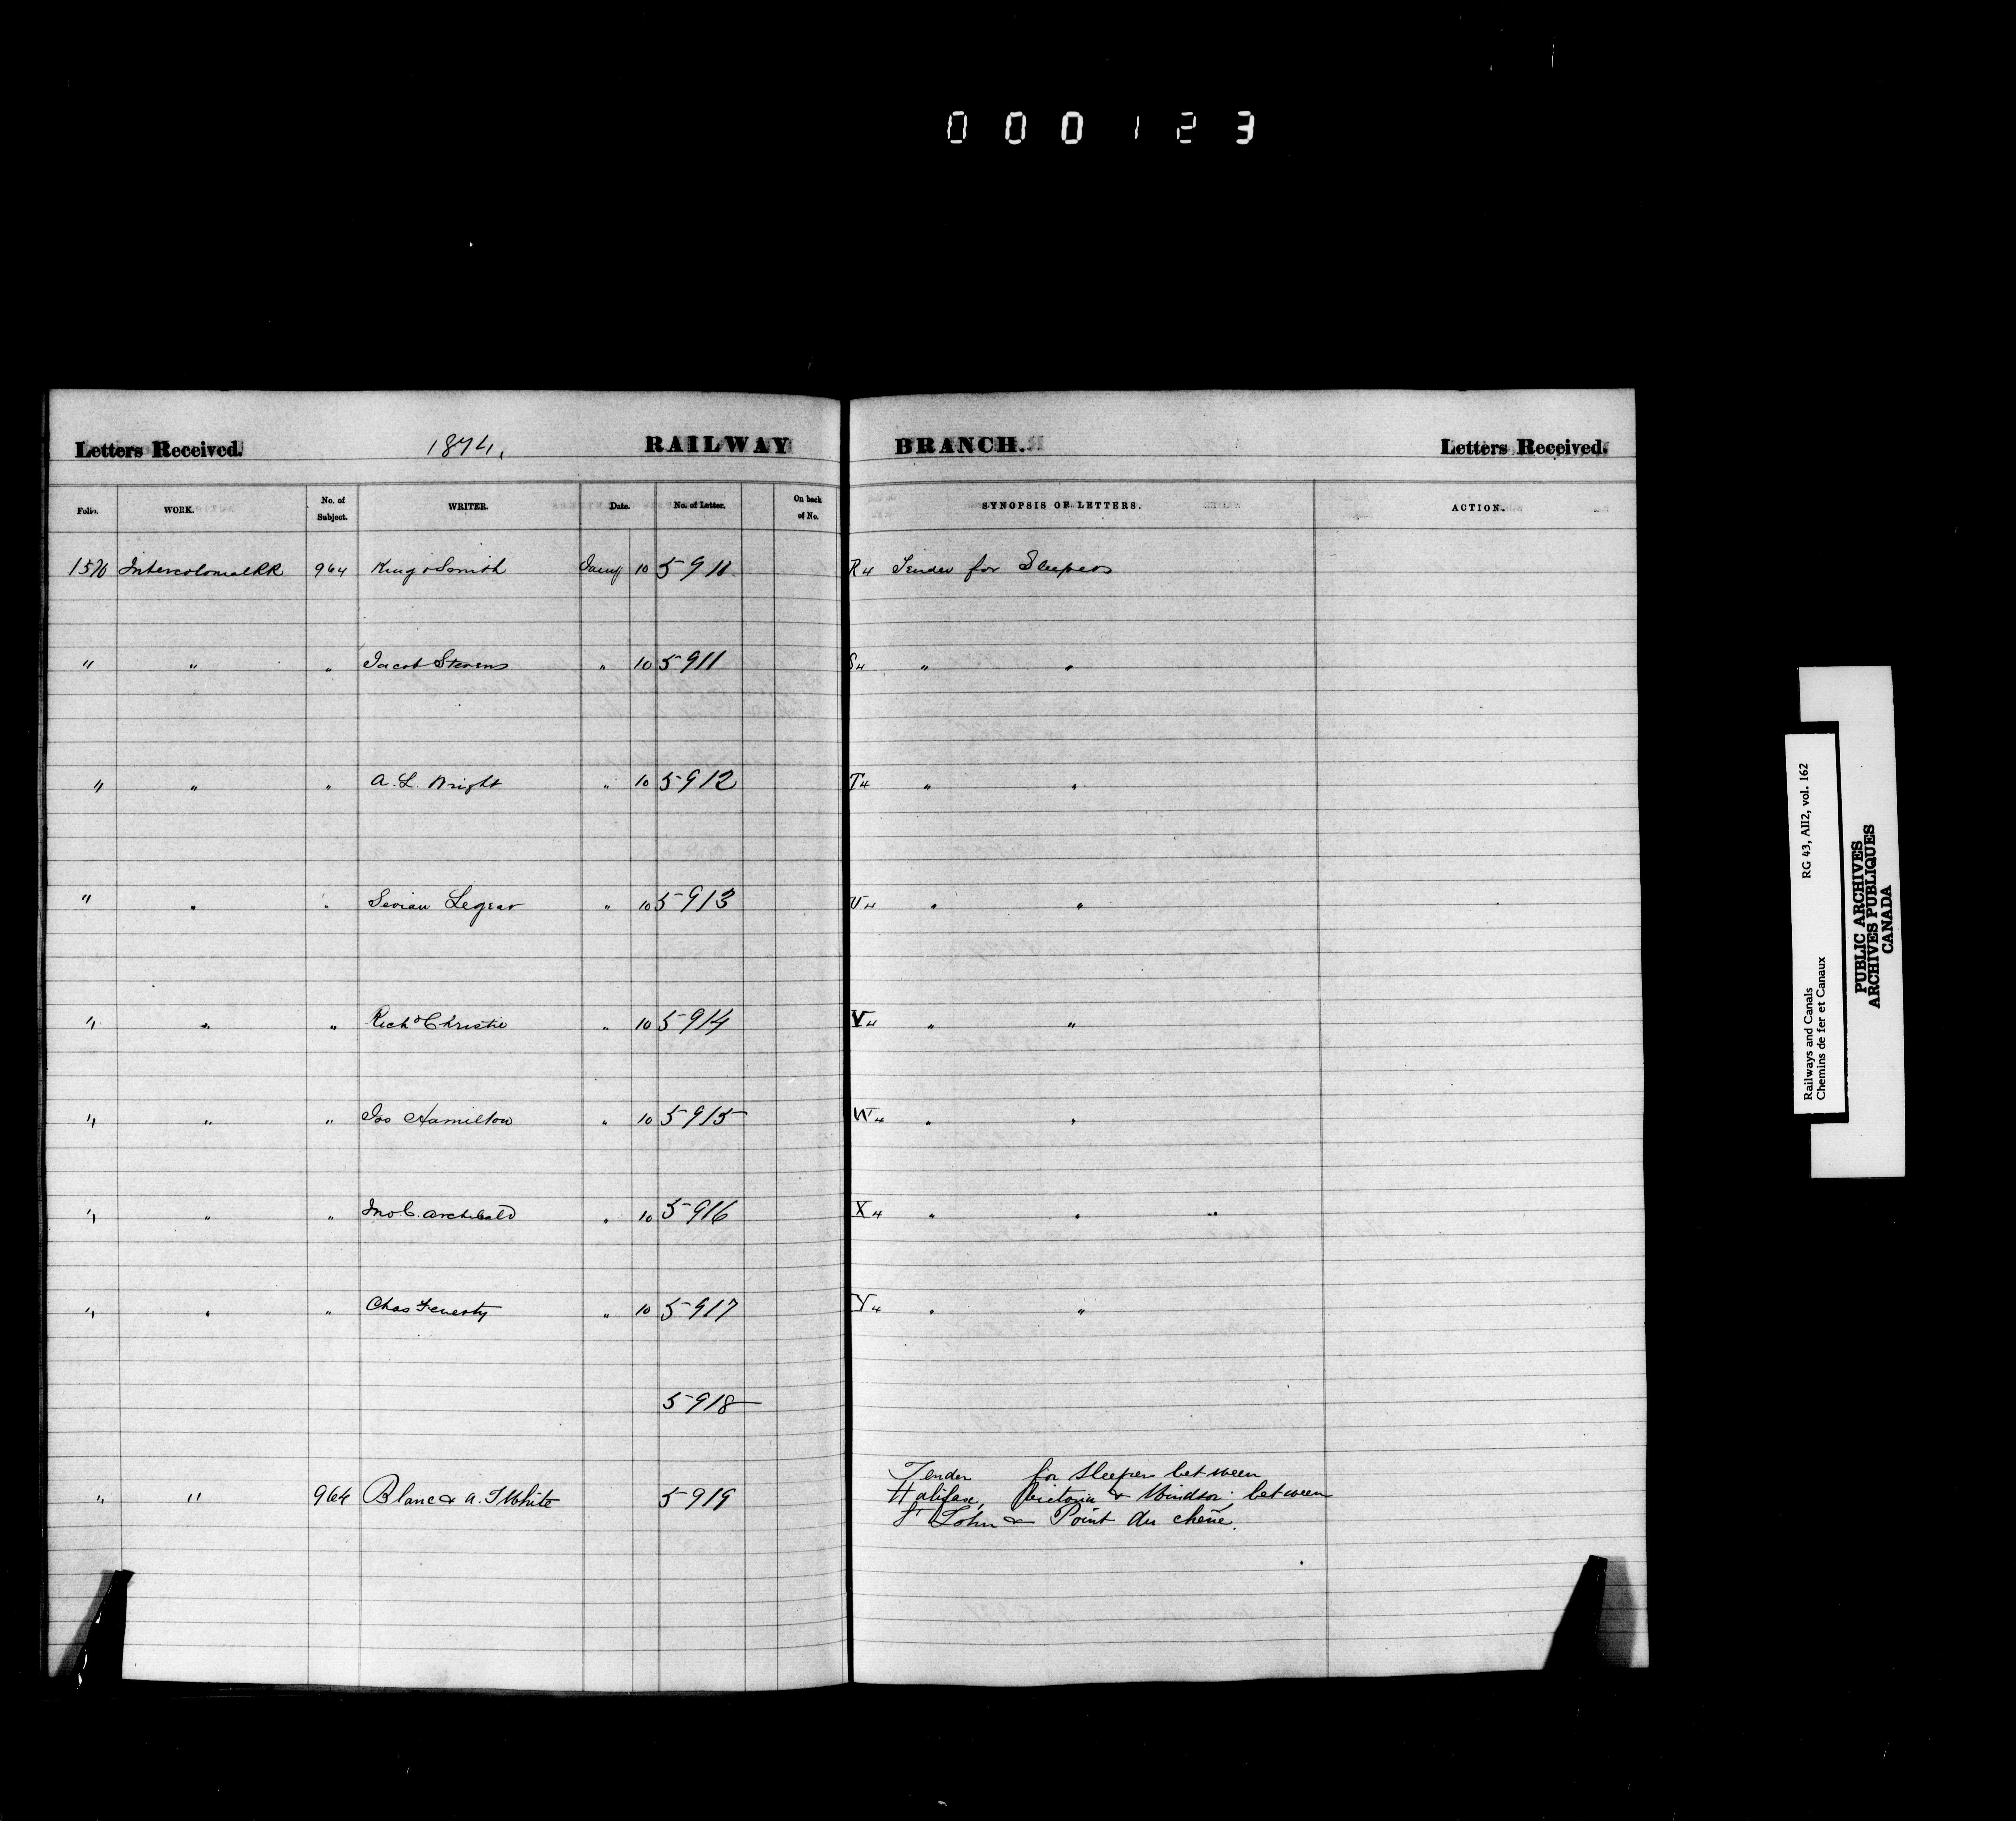 000123
Letters Received. 1874, RAILWAY BRANCH. Letters Received.
Folio. WORK. No. of Subject. WRITER. Date. No. of Letter. On back of No. SYNOPSIS OF LETTERS. ACTION.
1570 Intercolonial RR 964 King & Smith Jany 10 5911 R4 Tender for Sleepers
" " " Jacob Stevens " 10 5911 S4 " "
" " " A. L. Wright " 10 5912 T4 " "
" " " Legear " 10 5913 U4 " "
" " " Richd Christie " 10 5914 V4 " "
" " " Jas Hamilton " 10 5915 W4 " "
" " " Jno C. Archibald " 10 5916 X4 " " "
" " " Chas Fenerty " 10 5917 Y4 " "
5918
" " 964 Blanc & A. J White 5919 Tender for Sleepers between
Halifax, Pictou & Windsor; between
St John & Point du chene.
Railways and Canals RG 43, AII2, vol. 162
Chemins de fer et Canaux
PUBLIC ARCHIVES
ARCHIVES PUBLIQUES
CANADA